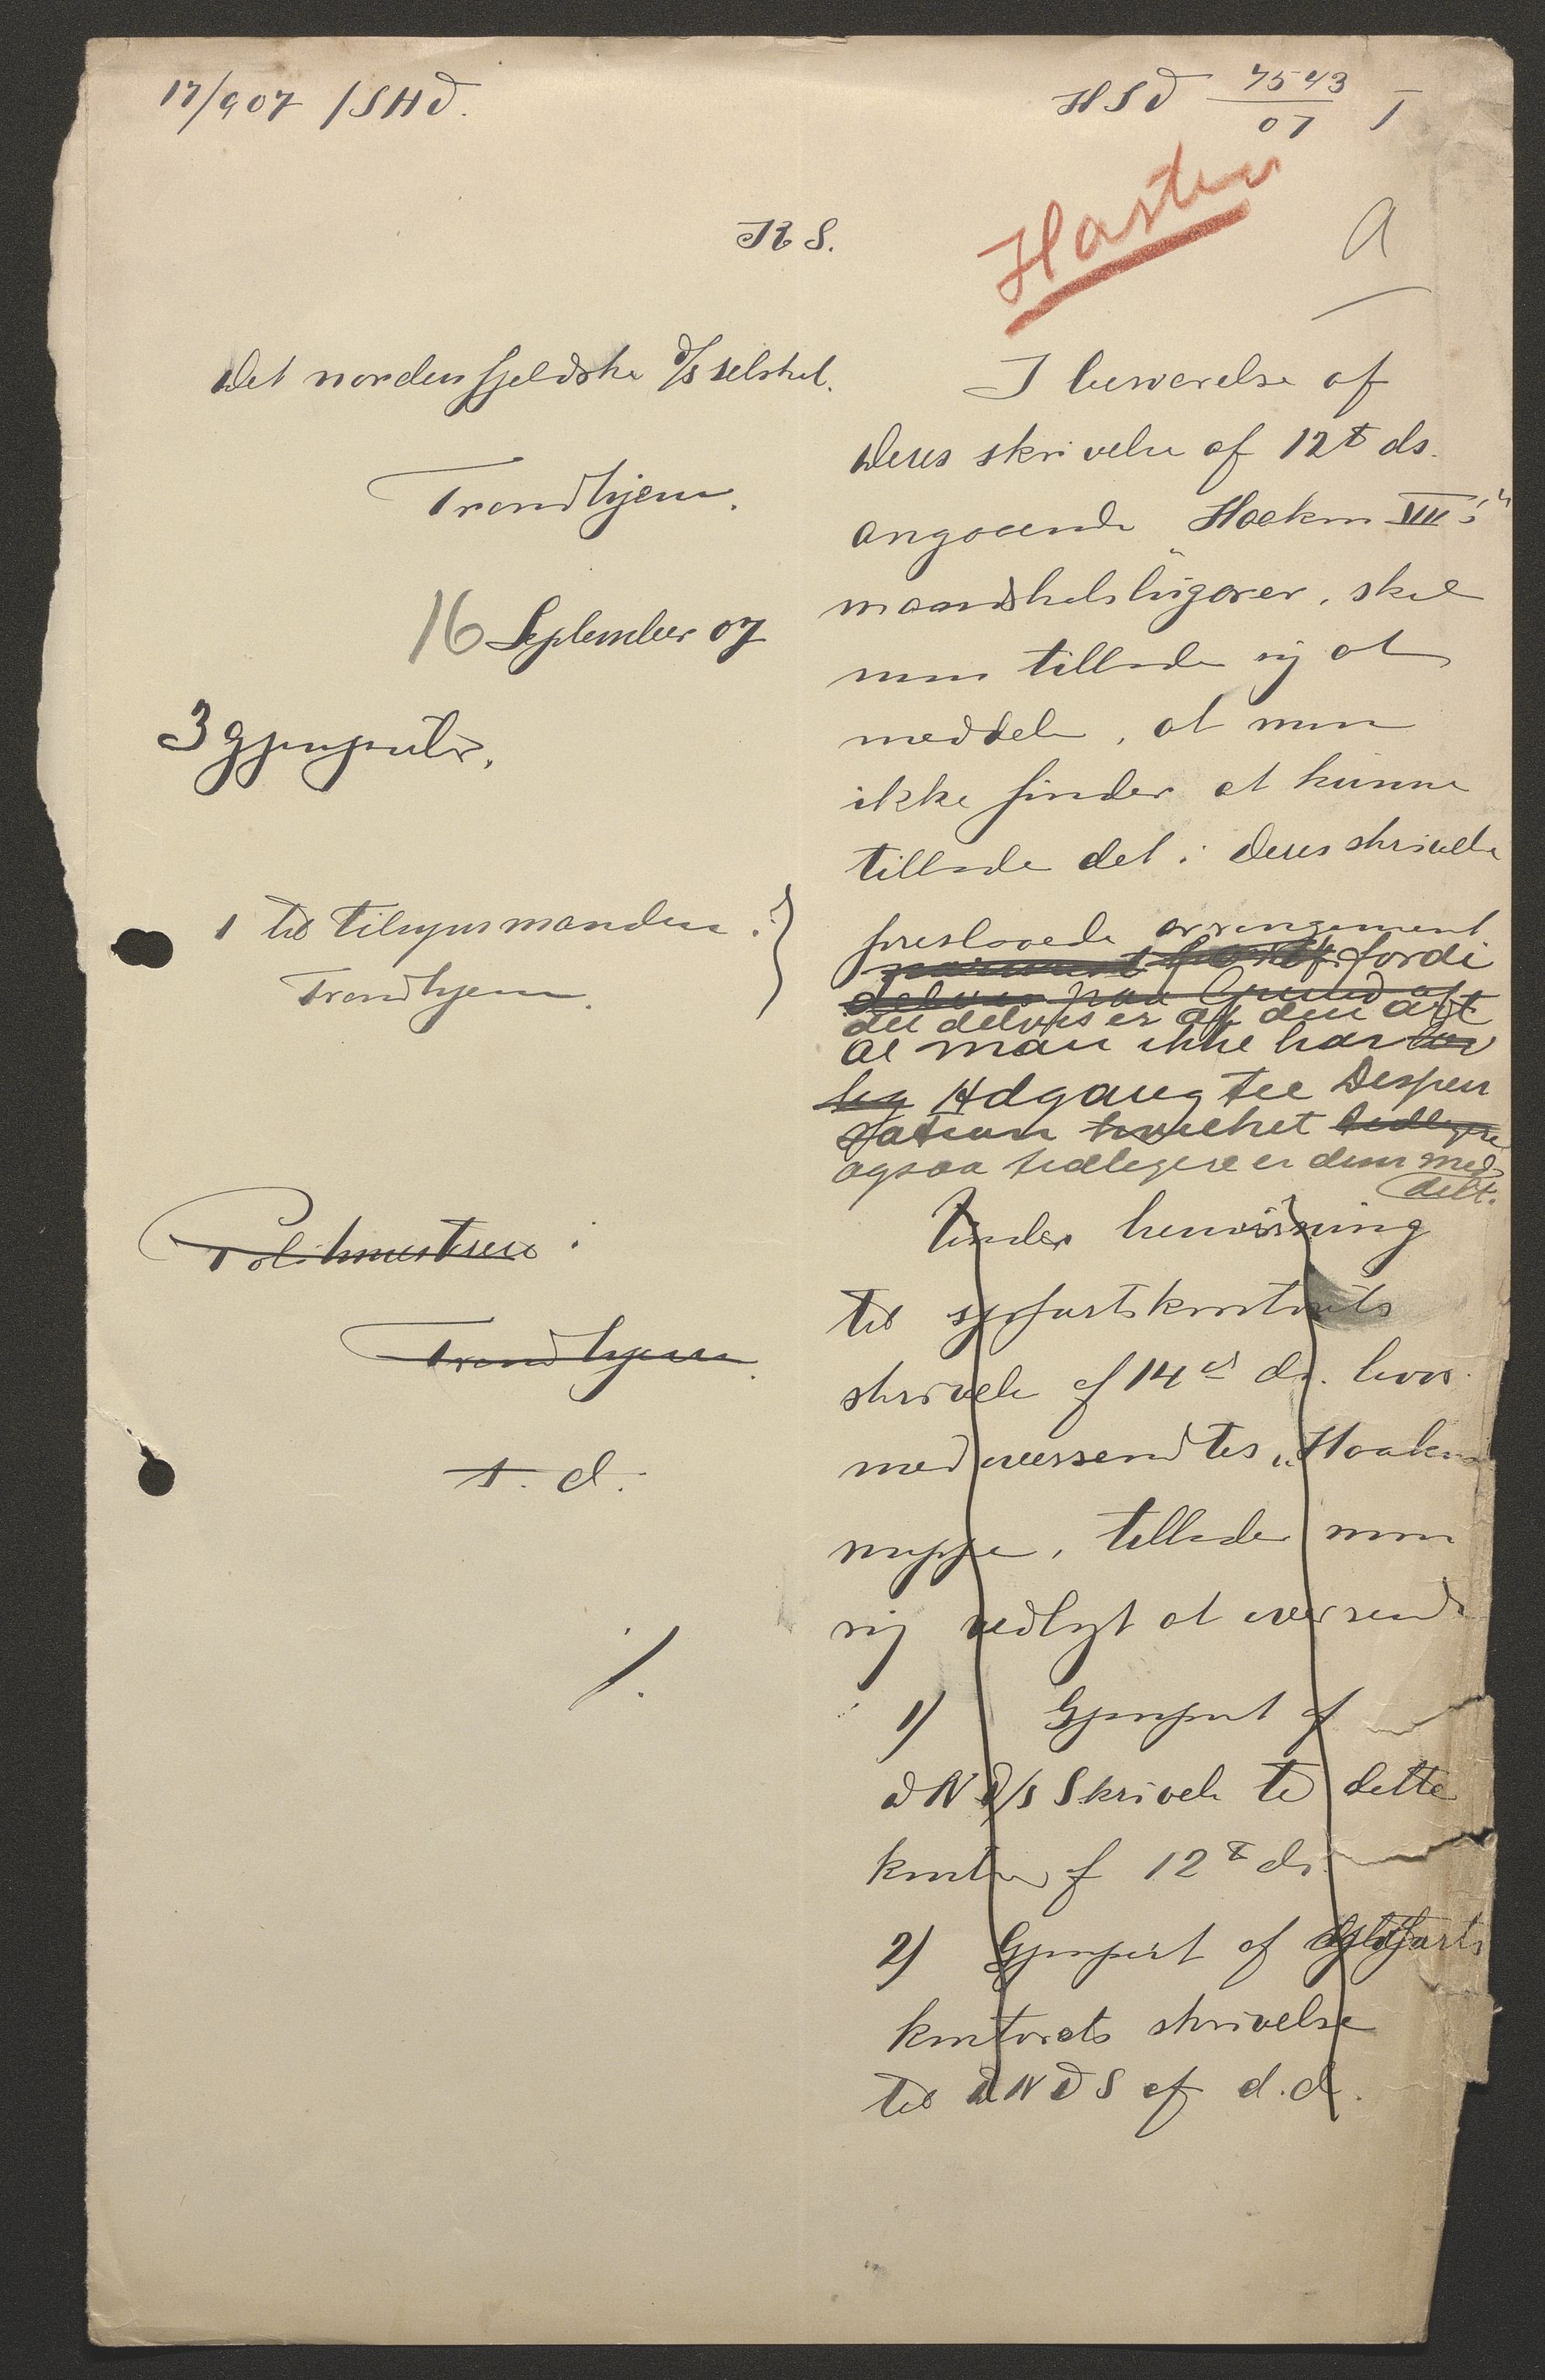 17/907 / SHD.
HSD 7543/07 I
Haster
KS.
a
Det nordenfjeldske D/S selskab.
Trondhjem.
16 September 07
3 gjenparter.
1 til tilsynsmanden i
Trondhjem.
Politimesteren i
Trondhjem.
s. d.
I besvarelse af
Deres skrivelse af 12te ds.
angaaende "Haakon VII's"
mandskabslugarer, skal
man tillade sig at
meddele, at man
ikke finder at kunne
tillade det i Deres skrivelse
foreslaaede arrangement
fordi
delvis paa Grund af
det delvis er af den art
at man ikke har
Adgang til Dispen
sation hvilket tidligere
ogsaa tidligere er dem med
delt.
Under henvisning
til sjøfartskontorets
skrivelse af 14de ds. hvor
med oversendtes "Haakon
mappe, tillader man
sig vedlagt at oversende
1) Gjenpart af
DND/S Skrivelse til dette
kontor af 12te ds.
2) Gjenpart af sjøfarts
kontorets skrivelse
til DNDS af d.d.